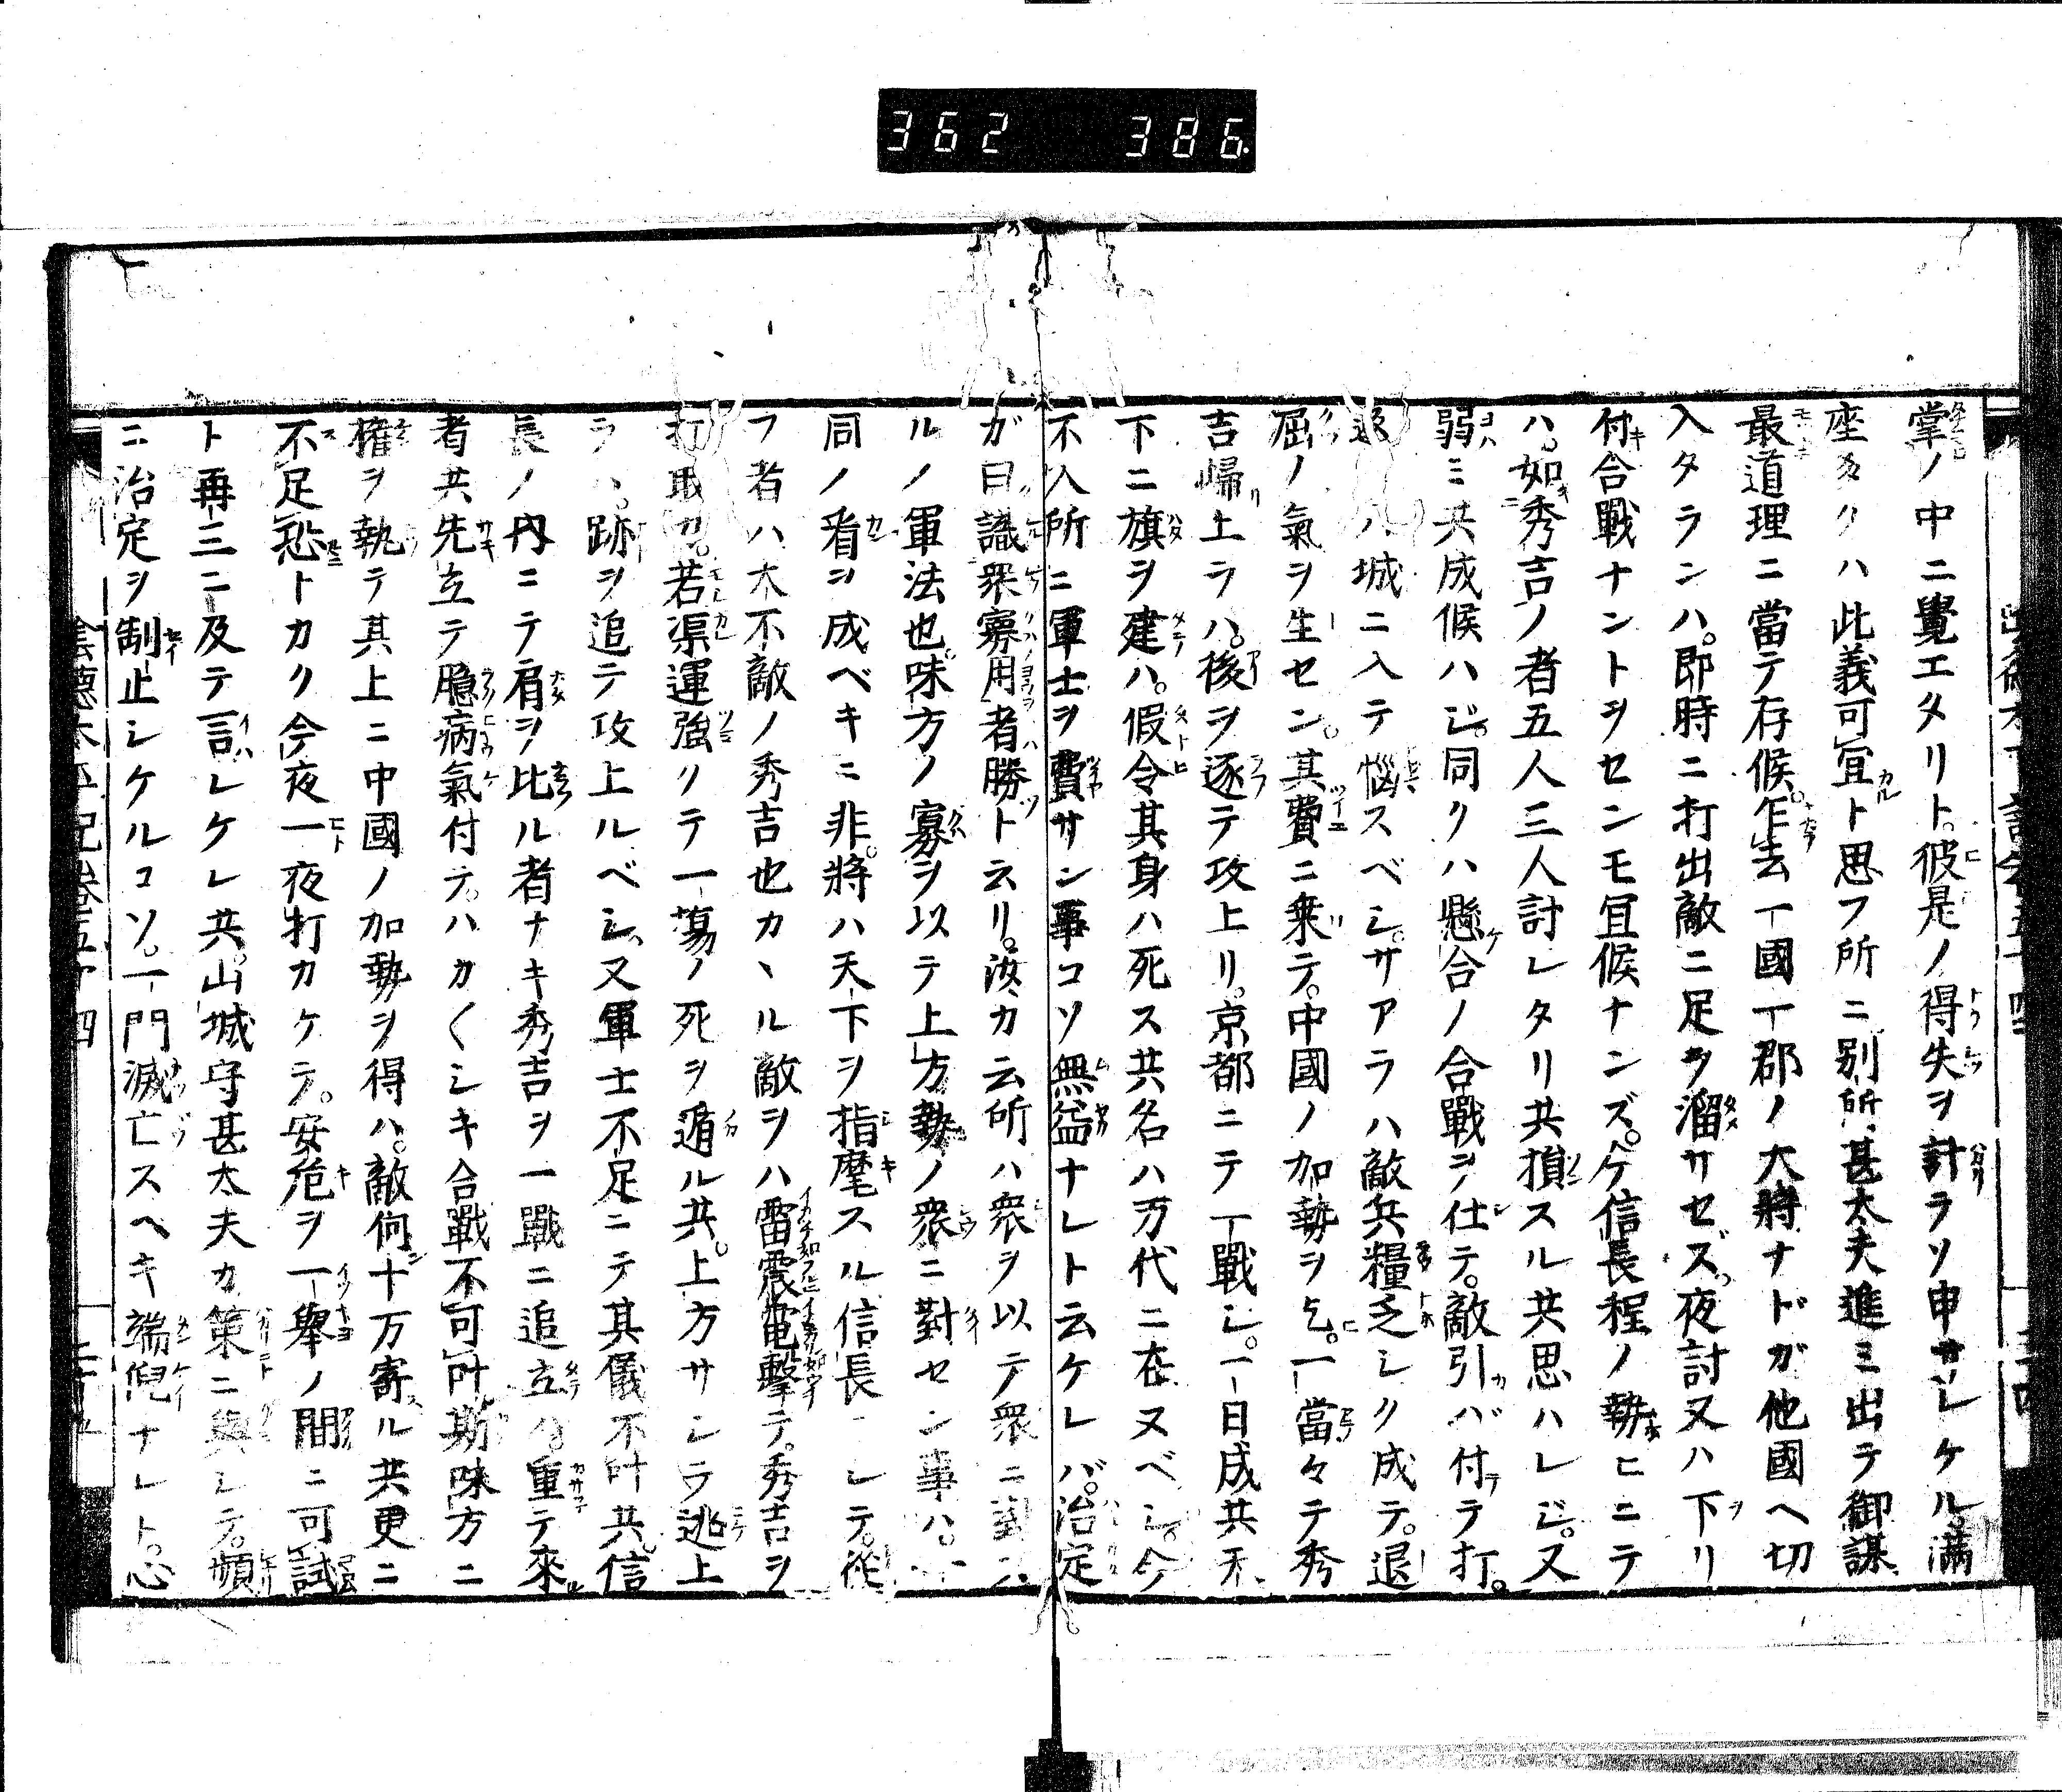 362 386
掌ノ中ニ覺エタリト。彼是ノ得失ヲ計ラソ申サレケル。滿
座多クハ此義可宜ト思フ所ニ別所甚太夫進ミ出テ御謀
最道理ニ當テ存候。乍去一國一郡ノ大將ナドガ他國ヘ切
入タランハ。即時ニ打出敵ニ足ヲ溜サセズ。夜討又ハ下リ
付合戰ナントヲセンモ宜候ナンズ。ケ信長程ノ勢ヒニテ
ハ。如秀吉ノ者五人三人討レタリ共損スル共思ハレジ。又
弱ミ共成候ハジ。同クハ懸合ノ合戰ヲ仕テ。敵引バ付テ打。
返ハ城ニ入テ惱スベシ。サアラハ敵兵糧乏シク成テ。退
屈ノ氣ヲ生セン。其費ニ乗テ。中國ノ加勢ヲ乞。一當々テ秀
吉歸上ラハ。後ヲ逐テ攻上リ。京都ニテ一戰シ。一日成共天
下ニ旗ヲ建ハ。假令其身ハ死ス共名ハ万代ニ在ヌベシ。今
不入所ニ軍士ヲ費サン事コソ無益ナレト云ケレバ。治定
ガ曰識衆寡用者勝ト云リ。汝カ云所ハ衆ヲ以テ衆ニ對ス
ルノ軍法也。味方ノ寡ヲ以テ上方勢ノ衆ニ對セン事ハ。
同ノ看ヲ成ベキニ非。將ハ天下ヲ指麾スル信長 シテ。從
フ者ハ大不敵ノ秀吉也カヽル敵ヲハ雷震電擊テ。秀吉ヲ
打取カ。若渠運強クテ一蕩ノ死ヲ遁ル共。上方サシテ逃上
ラハ。跡ヲ追テ攻上ルベシ。又軍士不足ニテ其儀不叶共。信
長ノ内ニテ肩ヲ比ル者ナキ秀吉ヲ一戰ニ追立ハ。重テ來
者共先立テ臆病氣付テ。ハカ〱シキ合戰不可叶。斯味方ニ
權ヲ執テ其上ニ中國ノ加勢ヲ得ハ。敵何十万寄ル共更ニ
不足恐トカク今夜一夜打カケテ。安危ヲ一擧ノ間ニ可試
ト再三ニ及テ言レケレ共。山城守甚太夫カ策ニ與シテ。頻
ニ治定ヲ制止シケルコソ。一門滅亡スヘキ端倪ナレト。心
陰德太平記卷五十四